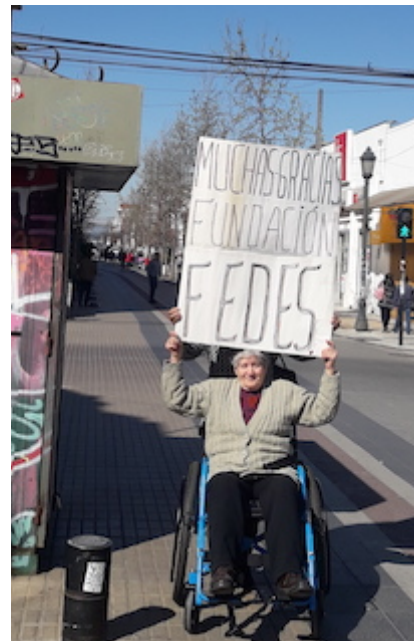 MUCHASGRACIAS
FUNDACIÓN
FEDES